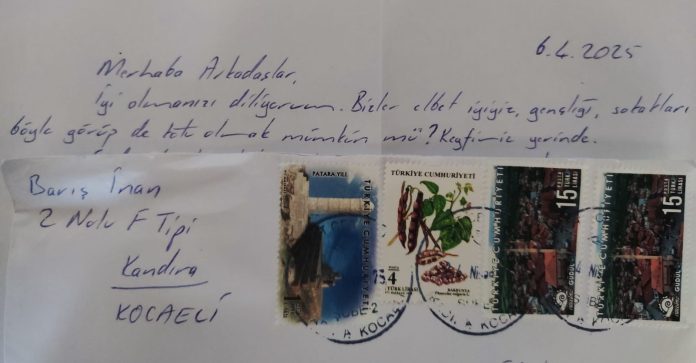 6.4.2025
Merhaba Arkadaşlar,
İyi olmanızı diliyorum. Bizler elbet iyiyiz, gençliği, sokakları
böyle görüp de kötü olmak mümkün mü? Keyfimiz yerinde.
Barış İnan
2 Nolu F Tipi
Kandıra
KOCAELİ
PATARA YILI
TÜRKİYE CUMHURİYETİ
TÜRKİYE CUMHURİYETİ
4
TÜRK LİRASI
BARBUNYA
CUMHURİYETİ
15
TÜRK
LİRASI
GÜDÜL
CUMHURİYETİ
15
TÜRK
LİRASI
GÜDÜL